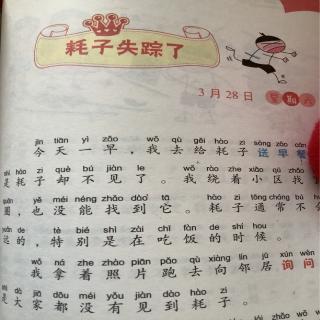 耗子失踪了
3月28日 星期六
jīn tiān yì zǎo wǒ qù gěi hào zi sòng zǎo cān
今天一早，我去给耗子送早餐
shì hào zi què bú jiàn le wǒ rào zhe xiǎo qū zhǎo
是耗子却不见了。我绕着小区找
quān yě méi néng zhǎo dào tā hào zi tōng cháng bú hu
圈，也没能找到它。耗子通常不会
yuǎn de tè bié shì zài chī fàn de shí hou
远的，特别是在吃饭的时候。
wǒ ná zhe zhào piàn pǎo qù xiàng lín jū xún wèn
我拿着照片跑去向邻居询问
shì dà jiā dōu méi yǒu jiàn dào hào zi
是大家都没有见到耗子。